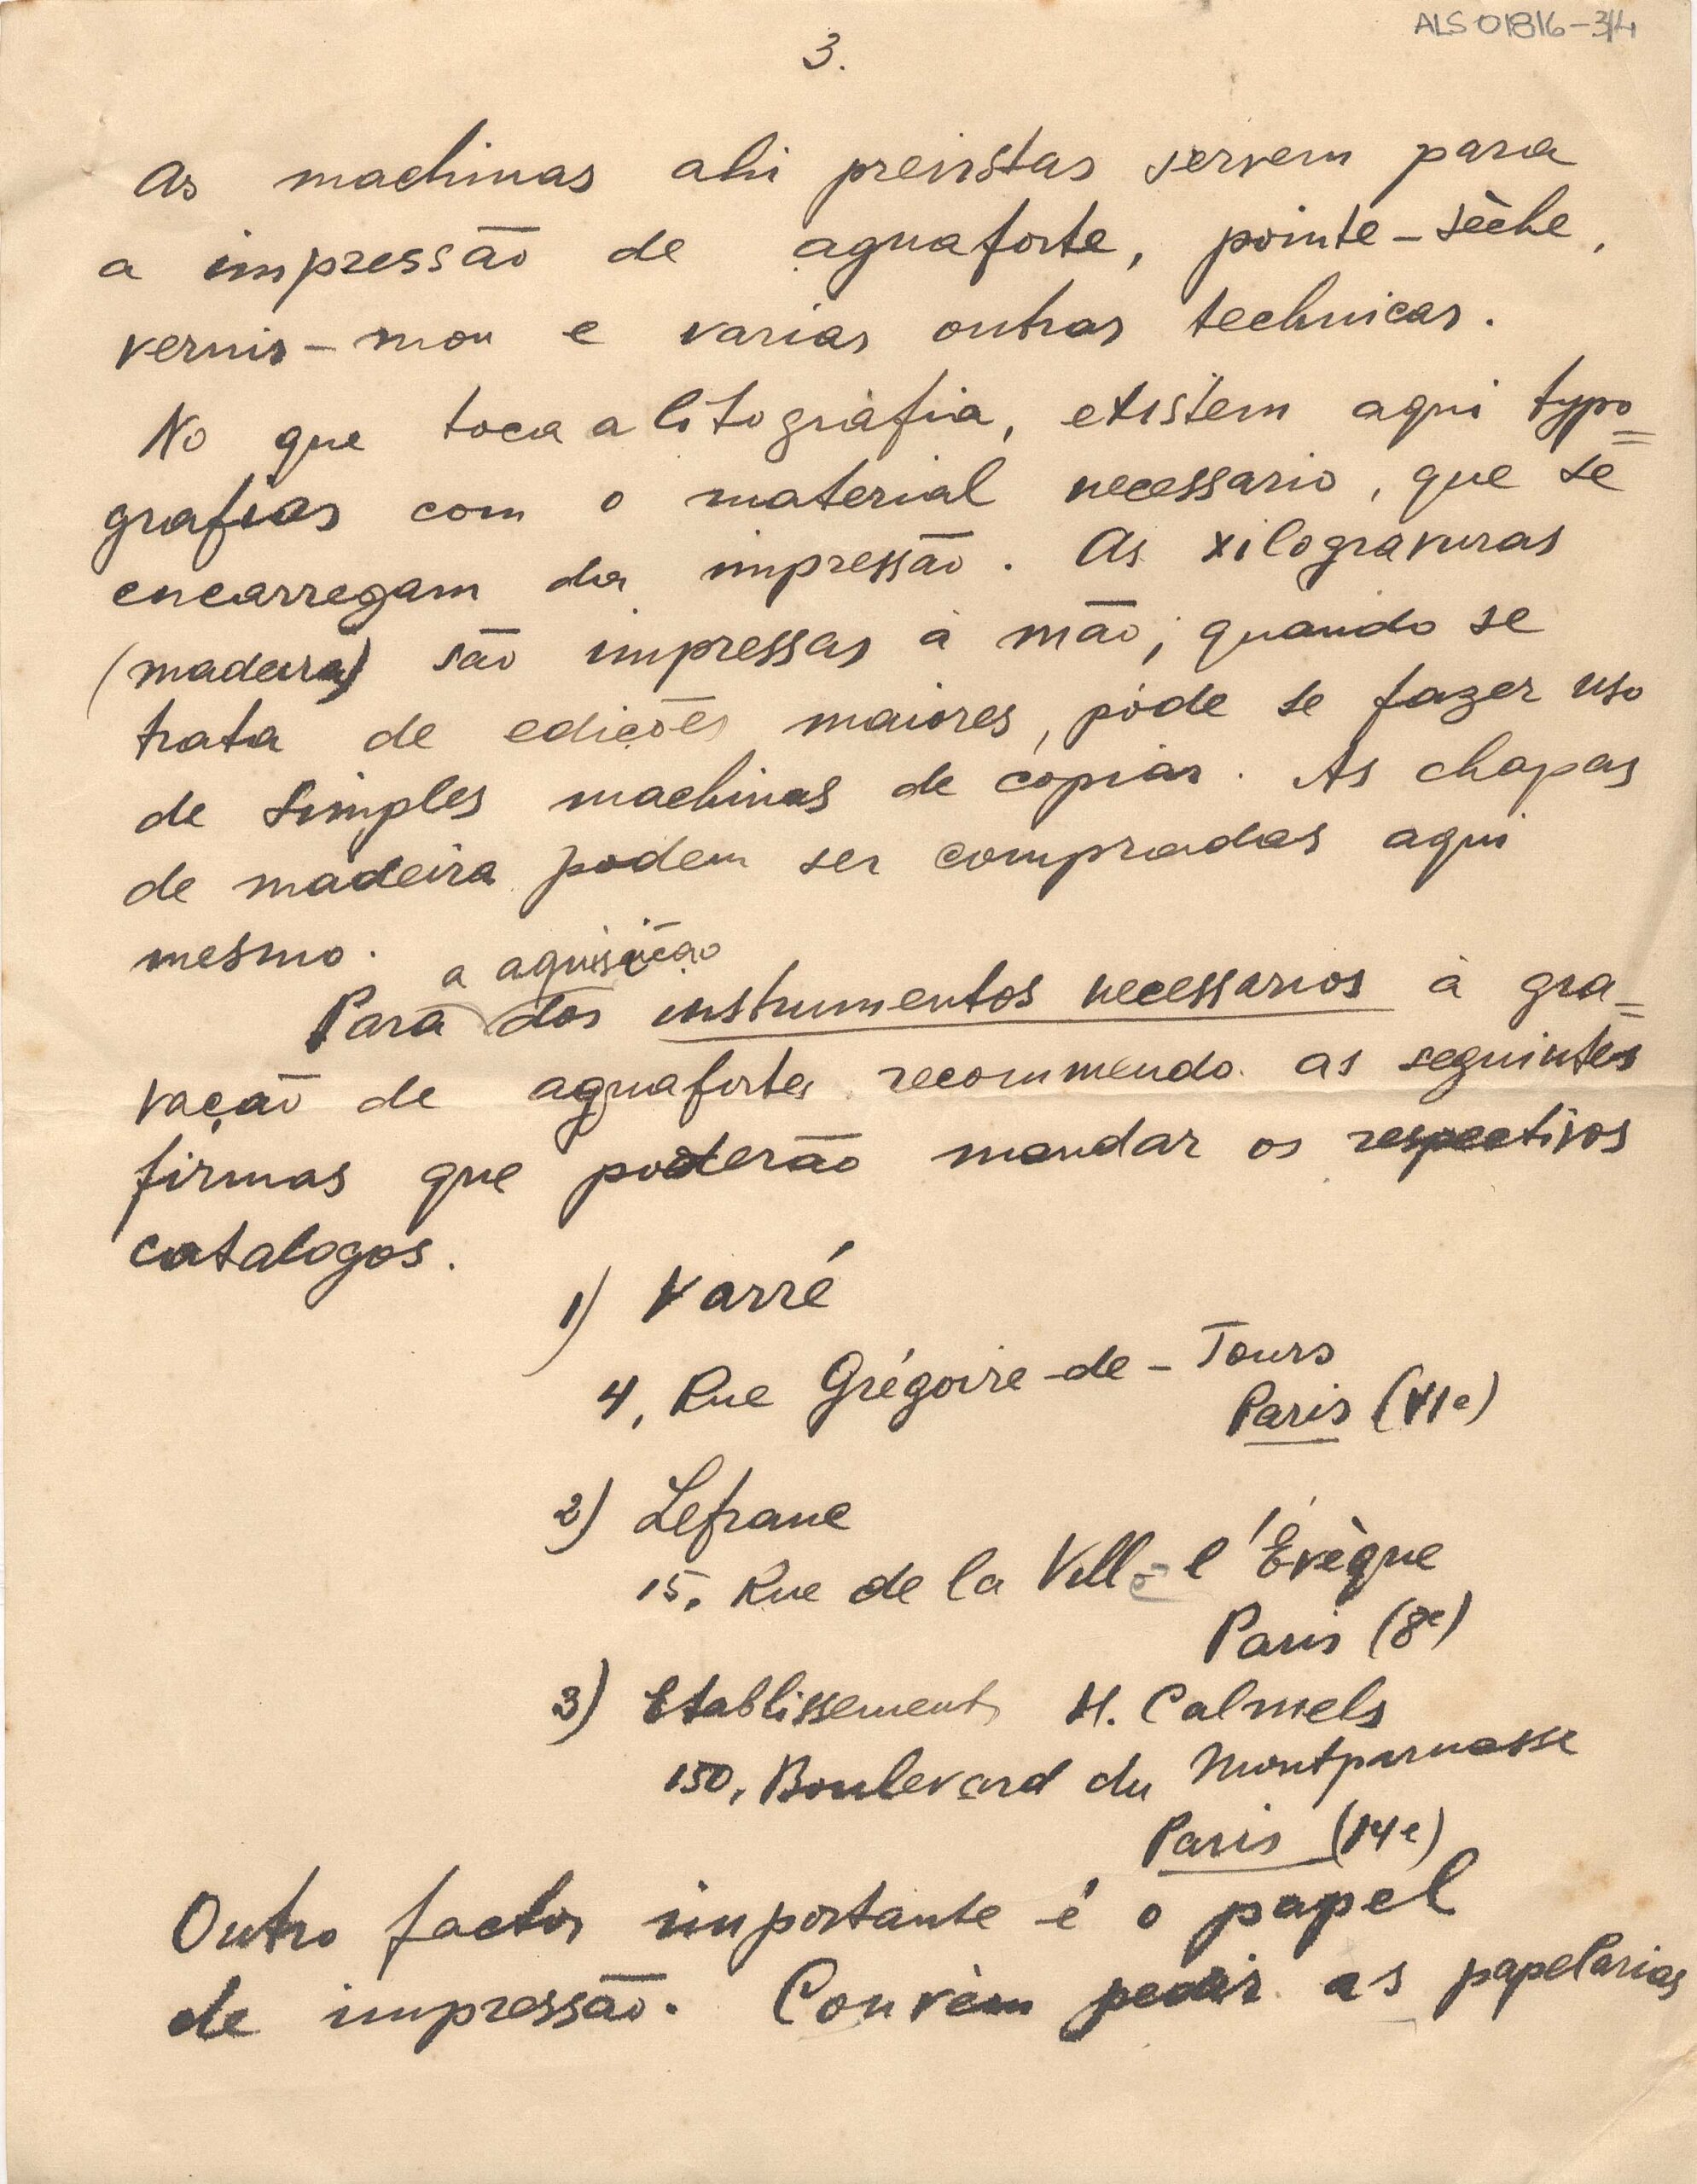 ALS 01816-3/4
3.
As machinas ahi previstas servem para
a impressão de aguaforte, pointe-sèche,
vernis-mou e varias outras technicas.
No que toca a litografia, existem aqui typo=
grafias com o material necessario, que se
encarregam da impressão. As xilogravuras
(madeira) são impressas à mão; quando se
trata de edições maiores, póde se fazer uso
de simples machinas de copiar. As chapas
de madeira podem ser compradas aqui
mesmo.
a aquisição
Para dos instrumentos necessarios à gra=
vação de aguafortes recommendo as seguintes
firmas que poderão mandar os respectivos
catalogos.
1) Varré
4, Rue Grégoire-de-Tours
Paris (VIe)
2) Lefranc
15, Rue de la Ville-l'Evèque
Paris (8e)
3) Etablissements H. Calmels
150, Boulevard du Montparnasse
Paris (14e)
Outro factor importante é o papel
de impressão. Convèm pedir as papelarias